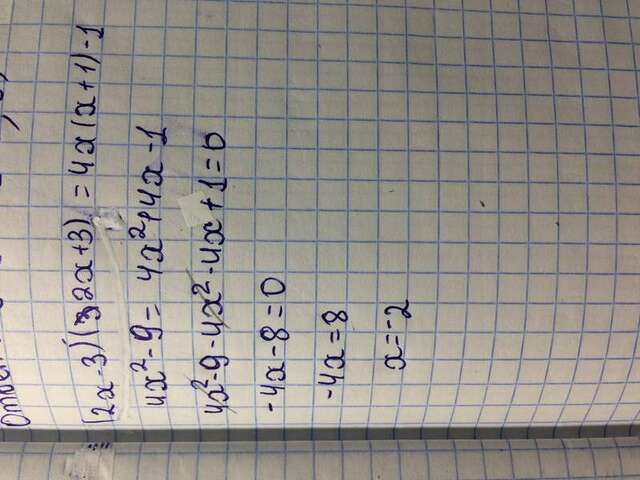 Ответ:
(2x-3)(2x+3) = 4x(x+1)-1
4x²-9 = 4x²+4x-1
4x²-9-4x²-4x+1=0
-4x-8=0
-4x=8
x=-2